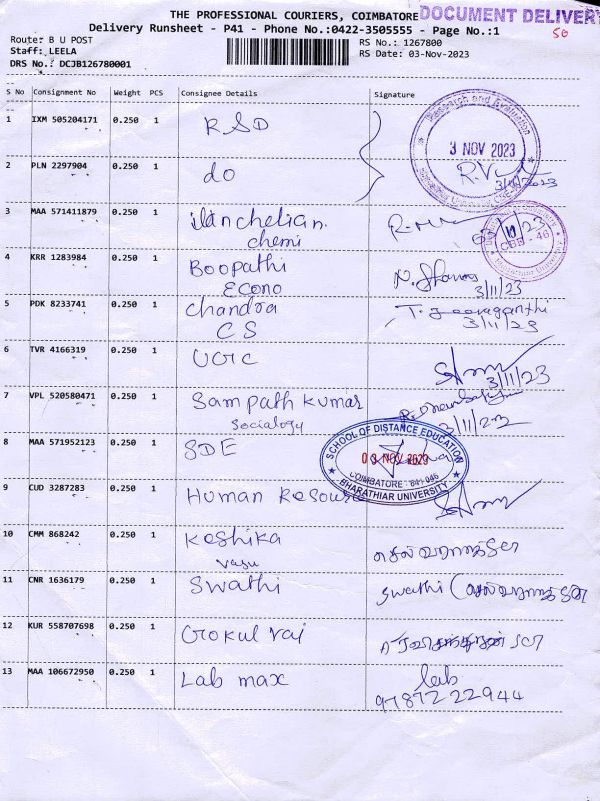 THE PROFESSIONAL COURIERS, COIMBATORE DOCUMENT DELIVERY
Delivery Runsheet - P41 - Phone No.:0422-3505555 - Page No.:1
50
Route: B U POST
RS No.: 1267800
Staff: LEELA
RS Date: 03-Nov-2023
DRS No.: DCJB126780001
S No Consignment No Weight PCS Consignee Details Signature
1 IXM 505204171 0.250 1 RSD
Research and Evaluation
3 NOV 2023
2 PLN 2297904 0.250 1 do
3/11/2023
3 MAA 571411879 0.250 1 ilanchelian.
chemi
Bharathiar University
4 KRR 1283984 0.250 1 Boopathi
Econo
3/11/23
5 PDK 8233741 0.250 1 Chandra
CS
3/11/23
6 TVR 4166319 0.250 1 UGC
3/11/23
7 VPL 520580471 0.250 1 Sampath Kumar
Sociology
3/11/23
8 MAA 571952123 0.250 1 SDE
SCHOOL OF DISTANCE EDUCATION
03 NOV 2023
COIMBATORE - 641 046
BHARATHIAR UNIVERSITY
9 CUD 3287283 0.250 1 Human Resource
10 CMM 868242 0.250 1 Keshika
Vasu
11 CNR 1636179 0.250 1 Swathi Swathi
12 KUR 558707698 0.250 1 Gokul raj
13 MAA 106672950 0.250 1 Lab max lab
97872 22944